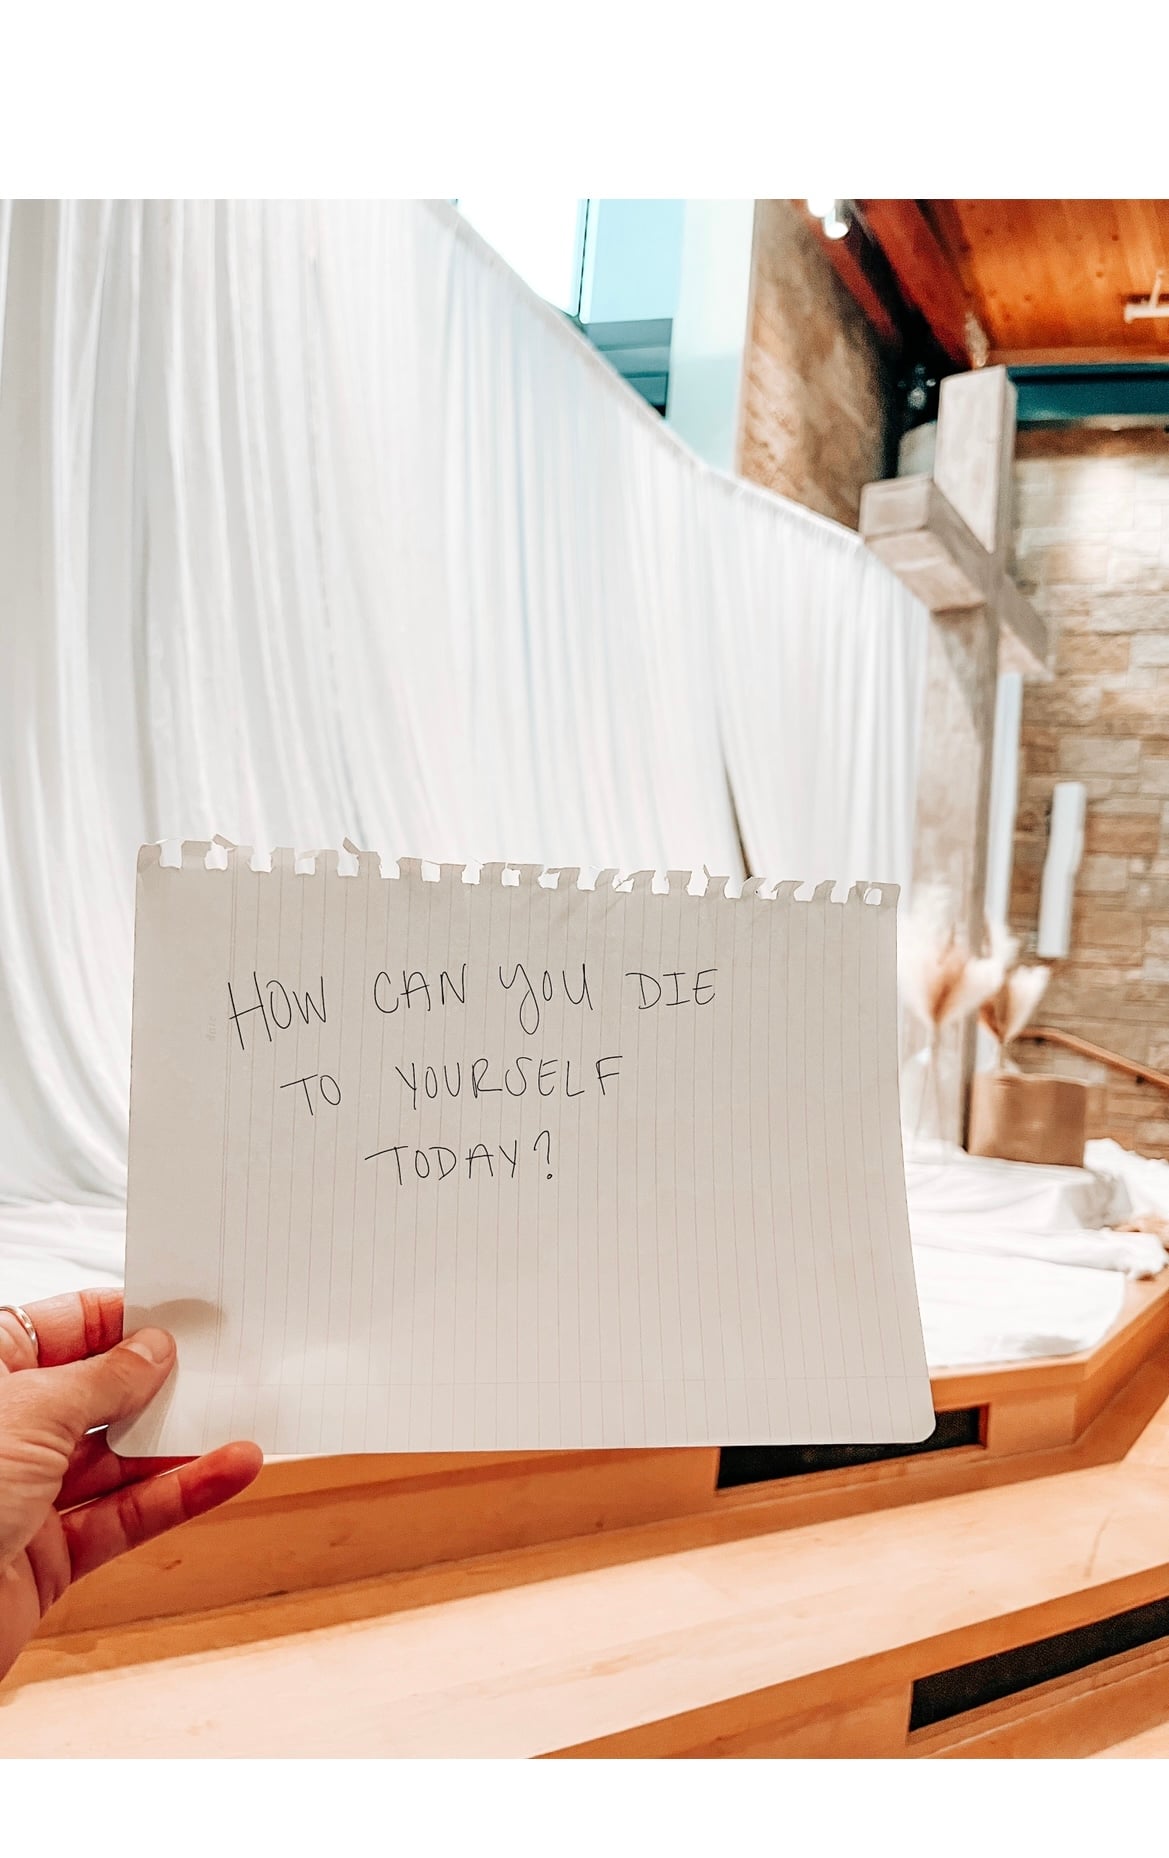 HOW CAN YOU DIE
TO YOURSELF
TODAY?